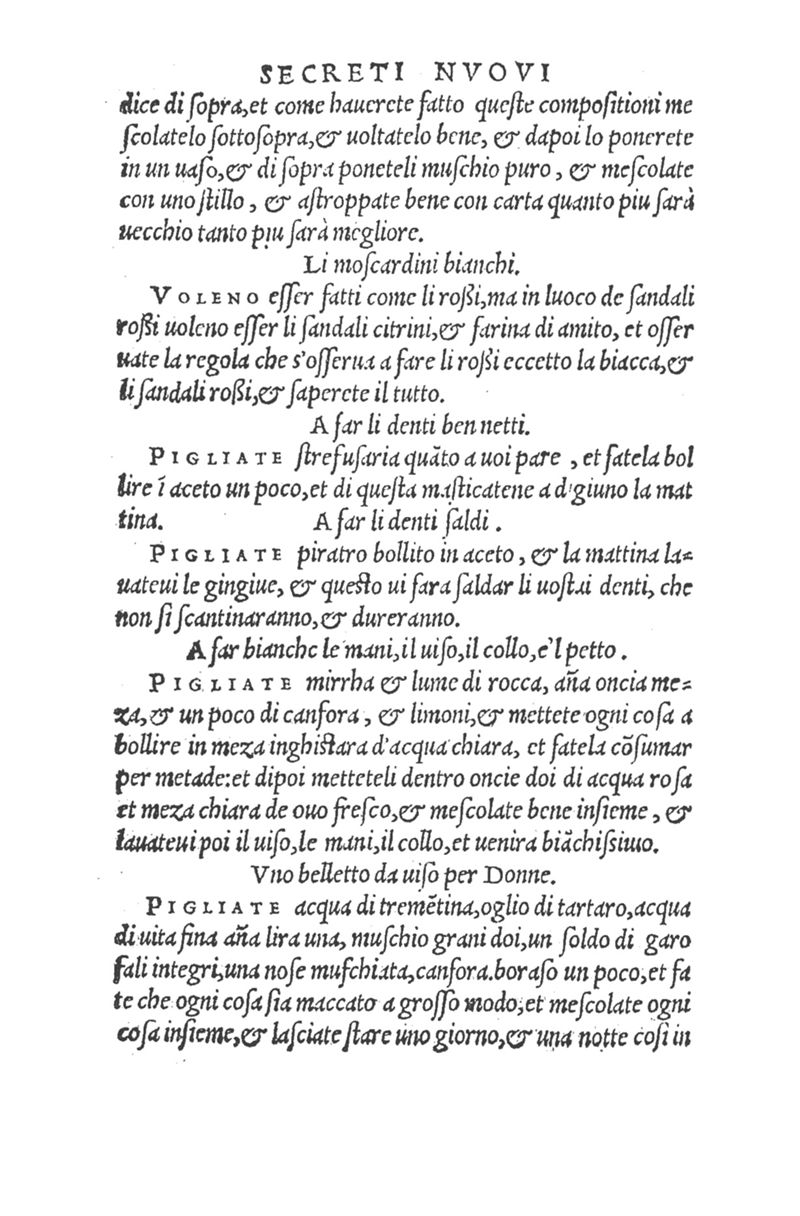 SECRETI NVOVI
dice di ſopra,et come hauerete fatto queſte compoſitioni me
ſcolatelo ſottoſopra,& uoltatelo bene, & dapoi lo ponerete
in un uaſo,& di ſopra poneteli muſchio puro, & meſcolate
con uno ſtillo, & aſtroppate bene con carta quanto piu ſarà
uecchio tanto piu ſarà megliore.
Li moſcardini bianchi.
VOLENO eſſer fatti come li roßi,ma in luoco de ſandali
roßi uoleno eſſer li ſandali citrini,& farina di amito, et oſſer
uate la regola che s'oſſerua a fare li roßi eccetto la biacca,&
li ſandali roßi,& ſaperete il tutto.
A far li denti ben netti.
PIGLIATE ſtrefuſaria quãto a uoi pare , et fatela bol
lire ĩ aceto un poco,et di queſta maſticatene a d'giuno la mat
tina. A far li denti ſaldi .
PIGLIATE piratro bollito in aceto, & la mattina la-
uateui le gingiue, & queſto ui fara ſaldar li uoſtai denti, che
non ſi ſcantinaranno,& dureranno.
A far bianche le mani,il uiſo,il collo,e'l petto .
PIGLIATE mirrha & lume di rocca, aña oncia me-
za,& un poco di canfora, & limoni,& mettete ogni coſa a
bollire in meza inghiſtara d'acqua chiara, et fatela cõſumar
per metade:et dipoi metteteli dentro oncie doi di acqua roſa
et meza chiara de ouo freſco,& meſcolate bene inſieme, &
lauateui poi il uiſo,le mani,il collo,et uenira biãchiſsimo.
Vno belletto da uiſo per Donne.
PIGLIATE acqua di tremẽtina,oglio di tartaro,acqua
di uita fina aña lira una, muſchio grani doi,un ſoldo di garo
fali integri,una noſe muſchiata,canfora.boraſo un poco,et fa
te che ogni coſa ſia maccato a groſſo modo,et meſcolate ogni
coſa inſieme,& laſciate ſtare uno giorno,& una notte coſi in